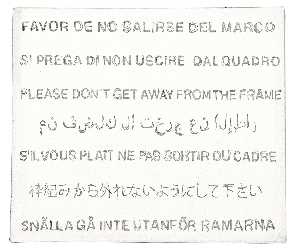 FAVOR DE NO SALIRSE DEL MARCO
SI PREGA DI NON USCIRE DAL QUADRO
PLEASE DON'T GET AWAY FROM THE FRAME
من فضلك لا تخرج عن الإطار
S'IL VOUS PLAIT NE PAS SORTIR DU CADRE
枠組みから外れないようにして下さい
SNÄLLA GÅ INTE UTANFÖR RAMARNA